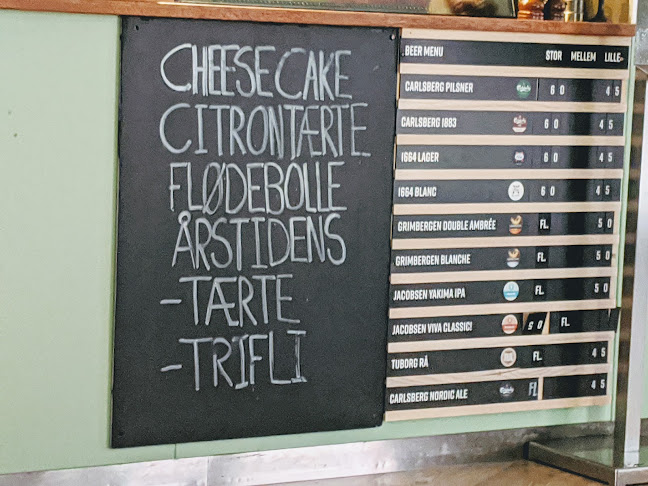 CHEESECAKE
CITRONTÆRTE
FLØDEBOLLE
ÅRSTIDENS
-TÆRTE
-TRIFLI
BEER MENU STOR MELLEM LILLE
CARLSBERG PILSNER 60 45
CARLSBERG 1883 60 45
1664 LAGER 60 45
1664 BLANC 60 45
GRIMBERGEN DOUBLE AMBRÉE FL. 50
GRIMBERGEN BLANCHE FL. 50
JACOBSEN YAKIMA IPA FL. 50
JACOBSEN VIVA CLASSIC! 50 FL.
TUBORG RÅ FL. 45
CARLSBERG NORDIC ALE Fl 45